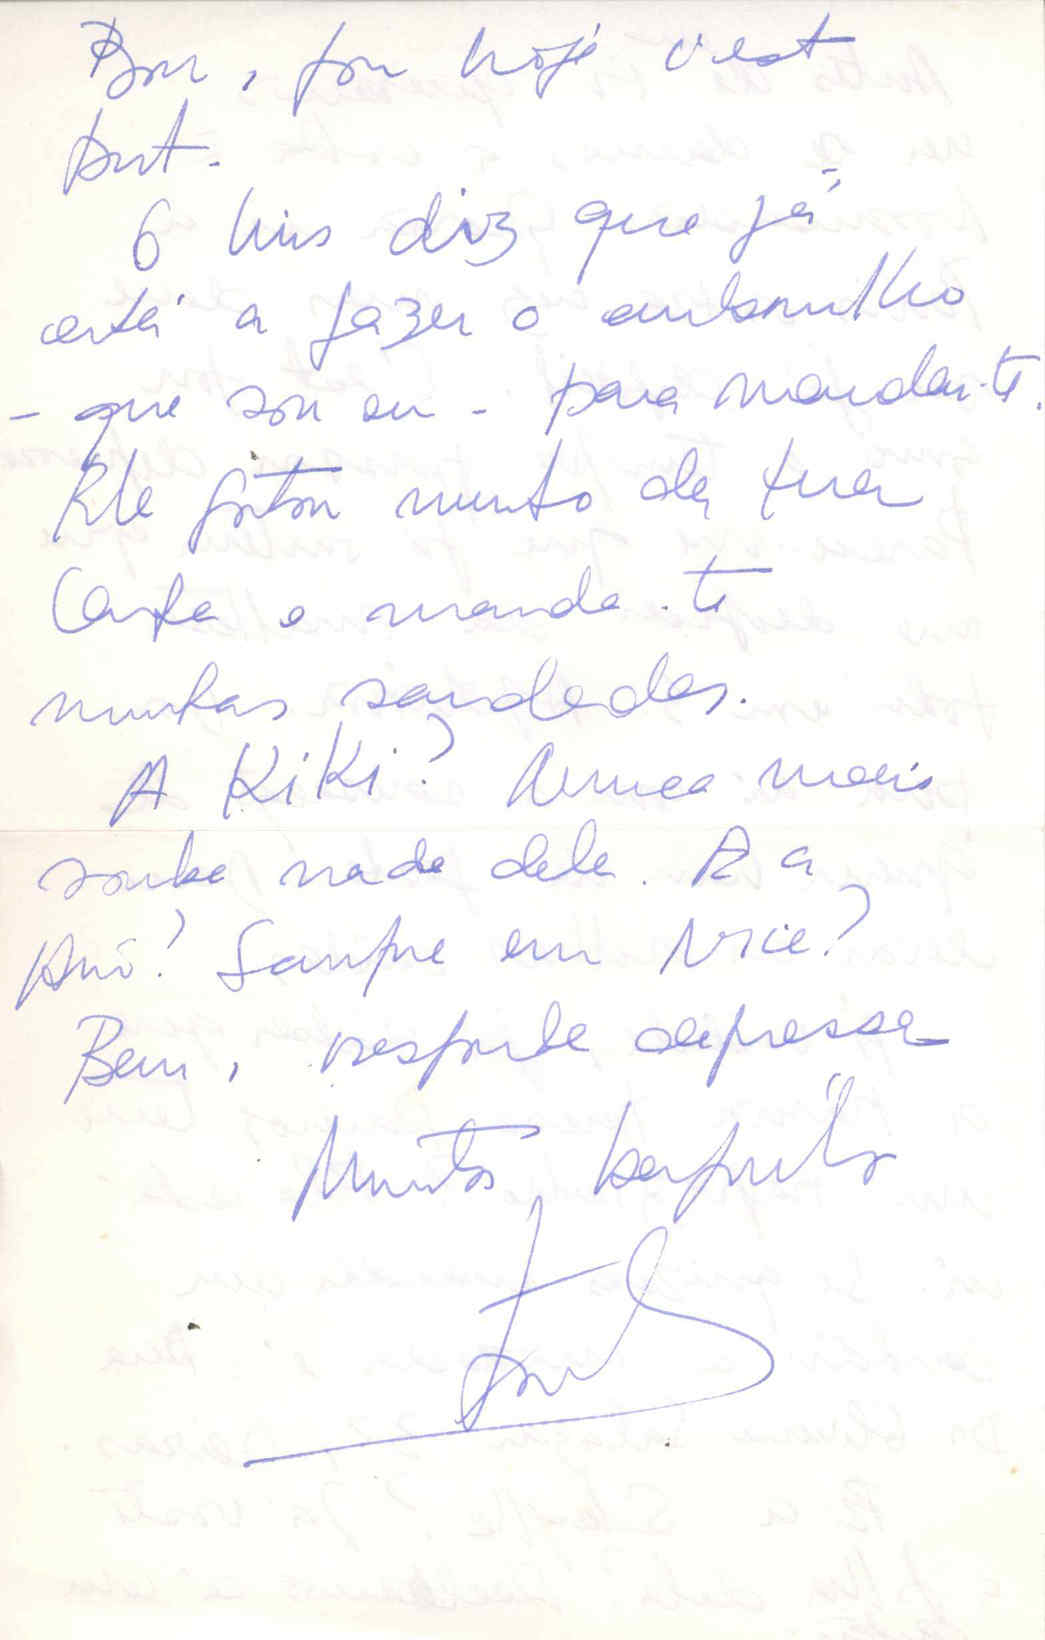 Bom, por hoje c'est
tout.
O Luis diz que já
está a fazer o embrulho
- que sou eu - para mandar-te.
Ele gostou muito da tua
Carta e manda-te
muitas saudades.
A Kiki? Nunca mais
soube nada dela. E a
Anô? Sempre em Nice?
Bem, responde depressa
Muitos